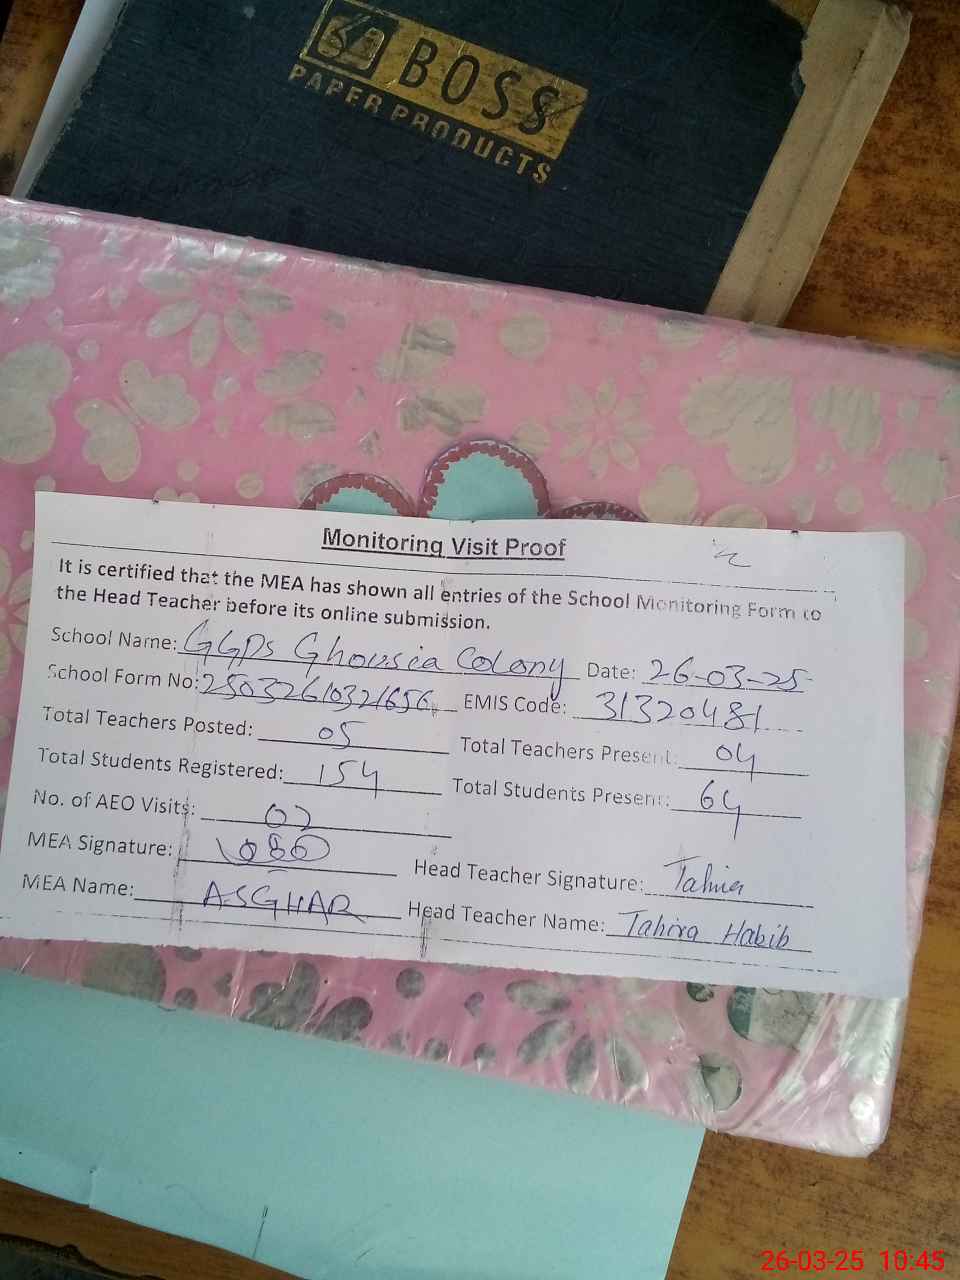 BOSS
PAPER PRODUCTS
Monitoring Visit Proof
It is certified that the MEA has shown all entries of the School Monitoring Form to
the Head Teacher before its online submission.
School Name: GGPS Ghousia Colony Date: 26-03-25
School Form No: 25032610321656 EMIS Code: 31320481
Total Teachers Posted: 05 Total Teachers Present: 04
Total Students Registered: 154 Total Students Present: 64
No. of AEO Visits: 02
MEA Signature: 086 Head Teacher Signature: Tahira
MEA Name: ASGHAR Head Teacher Name: Tahira Habib
26-03-25 10:45